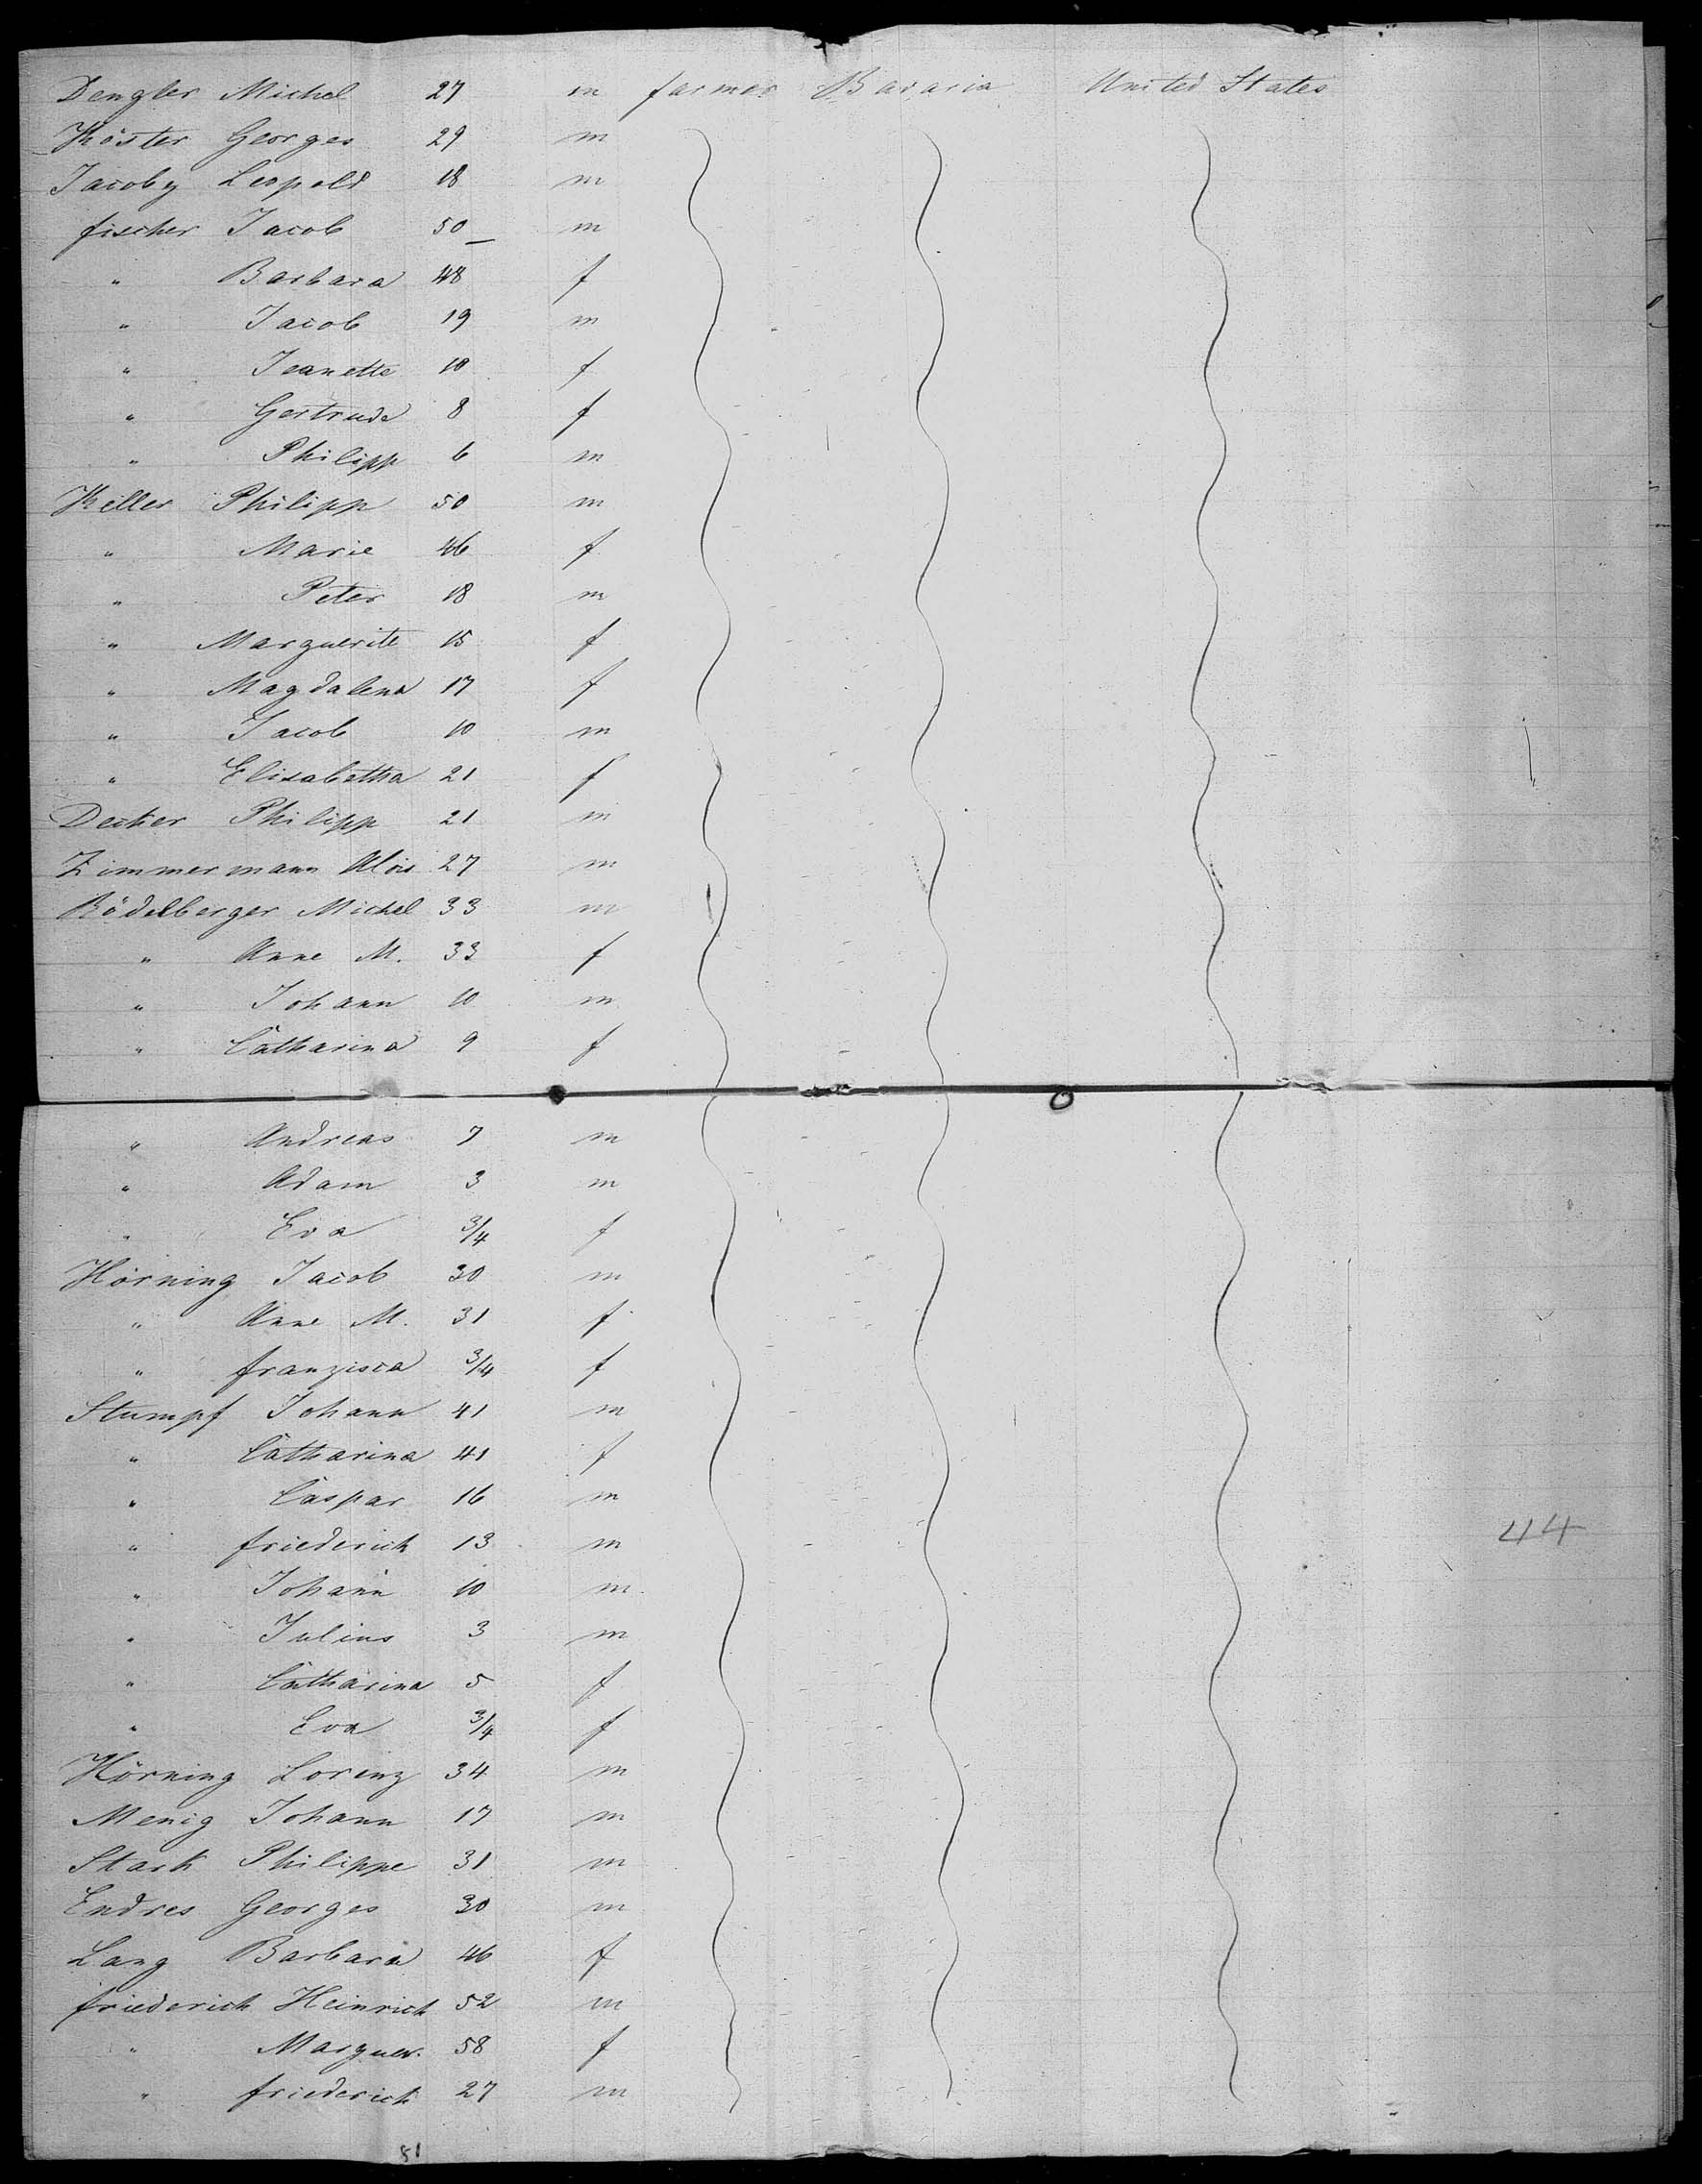 Dengler Michel 27 m farmer Bavaria United States
Köster Georges 29 m
Jacoby Leopold 18 m
fischer Jacob 50 m
" Barbara 48 f
" Jacob 19 m
" Jeanette 10 f
" Gertrude 8 f
" Philipp 6 m
Keller Philipp 50 m
" Marie 46 f
" Peter 18 m
" Marguerite 15 f
" Magdalena 17 f
" Jacob 10 m
" Elisabetha 21 f
Decker Philipp 21 m
Zimmermann Alois 27 m
Rödelberger Michel 33 m
" Anne M. 33 f
" Johann 10 m
" Catharina 9 f
" Andreas 7 m
" Adam 3 m
" Eva 3/4 f
Hörning Jacob 30 m
" Anne M. 31 f
" franzisca 3/4 f
Stumpf Johann 41 m
" Catharina 41 f
" Caspar 16 m
" friederich 13 m
44
" Johann 10 m
" Julius 3 m
" Catharina 5 f
" Eva 3/4 f
Hörning Lorenz 34 m
Menig Johann 17 m
Stark Philippe 31 m
Endres Georges 30 m
Lang Barbara 46 f
friederich Heinrich 52 m
" Marguer. 58 f
" friederich 27 m
81